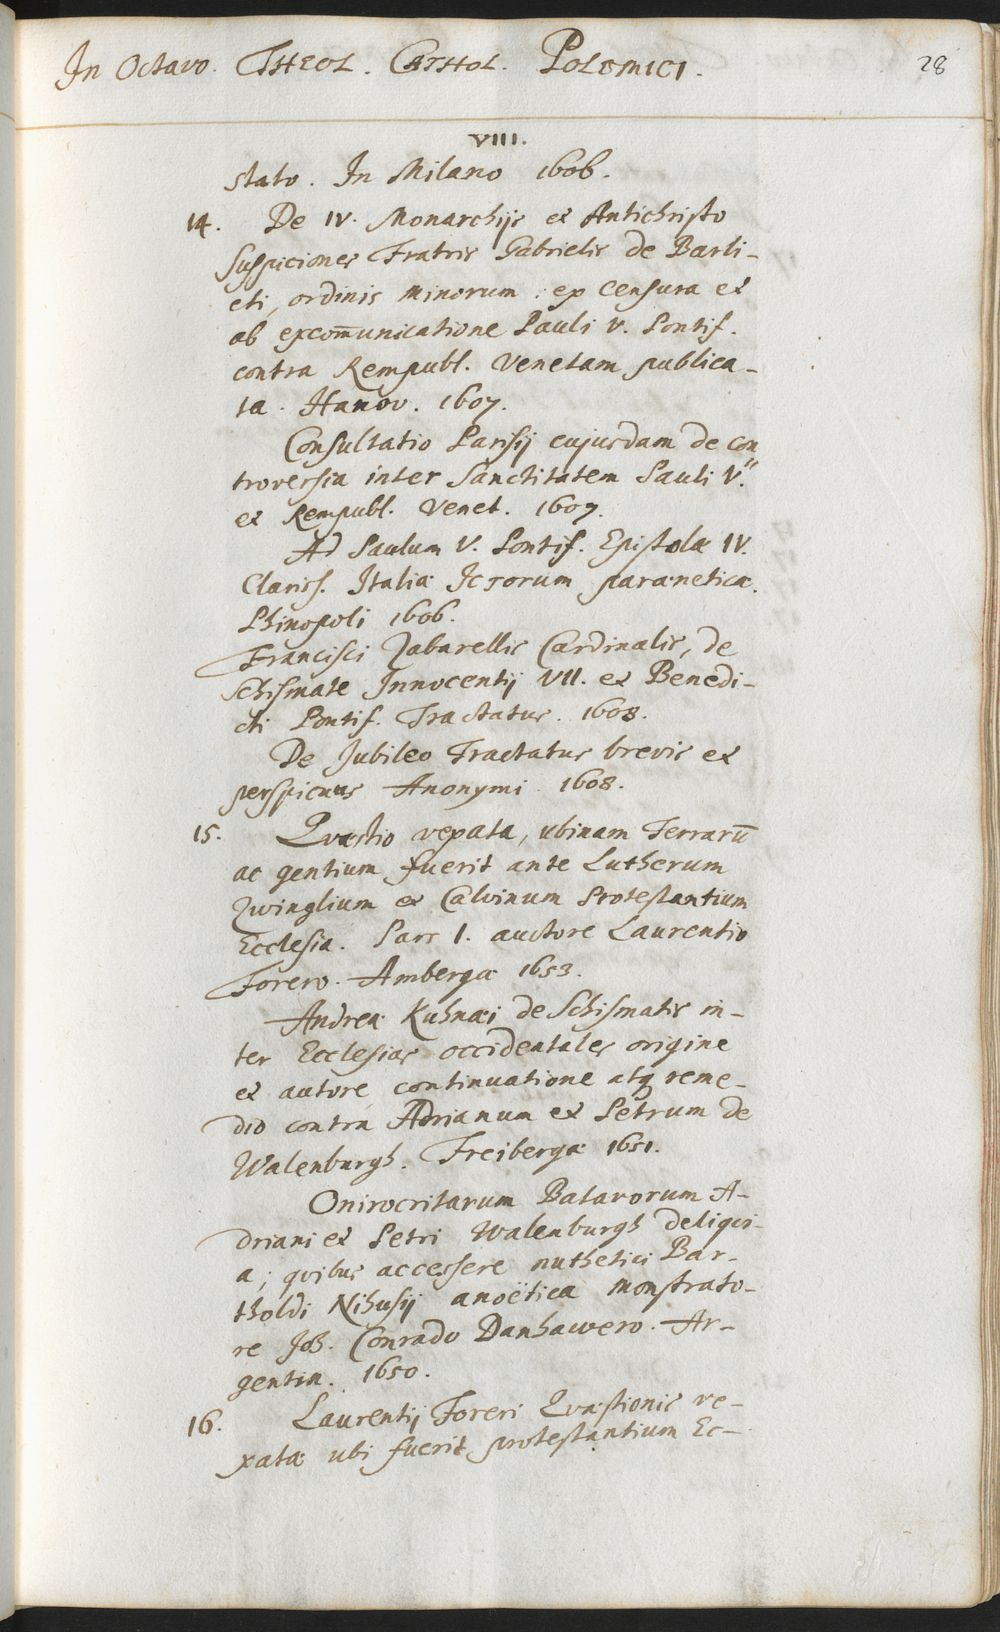 In Octavo. THEOL. CATHOL. POLEMICI. 28
VIII.
stato. In Milano 1606.
14. De IV. Monarchijs et Antichristo
suspiciones Fratris Gabrielis de Barli-
eti, ordinis minorum: ex censura et
ab excom̄unicatione Pauli V. Pontif.
contra Rempubl. Venetam publica-
ta. Hanov. 1607.
Consultatio Parisij cujusdam de con
troversia inter Sanctitatem Pauli V.
et Rempubl. Venet. 1607.
Ad Paulum V. Pontif. Epistolæ IV.
Clariss. Italiæ JCtorum parænetica.
Rhinopoli 1606.
Francisci Zabarellis Cardinalis, de
schismate Innocentij VII. et Benedi-
cti Pontif. Tractatus. 1608.
De Jubileo Tractatus brevis et
perspicuus Anonymi 1608.
15. Qvæstio vexata, ubinam Terrarū
ac gentium fuerit ante Lutherum
Zwinglium et Calvinum Protestantium
Ecclesia. Pars I. auctore Laurentio
Forero. Ambergæ 1653.
Andreæ Kuhnæi de Schismatis in-
ter Ecclesias occidentales origine
et autore, continuatione atq reme-
dio contra Adrianum et Petrum de
Walenburgh. Freibergæ 1651.
Onirocritarum Batavorum A-
driani et Petri Walenburgh deliqui-
a; qvibus accessere nuthetici Bar-
tholdi Nihusij anoëtica monstrato-
re Joh. Conrado Danhawero. Ar-
gentin. 1650.
16. Laurentij Foreri Qvæstionis ve-
xatæ ubi fuerit protestantium Ec-